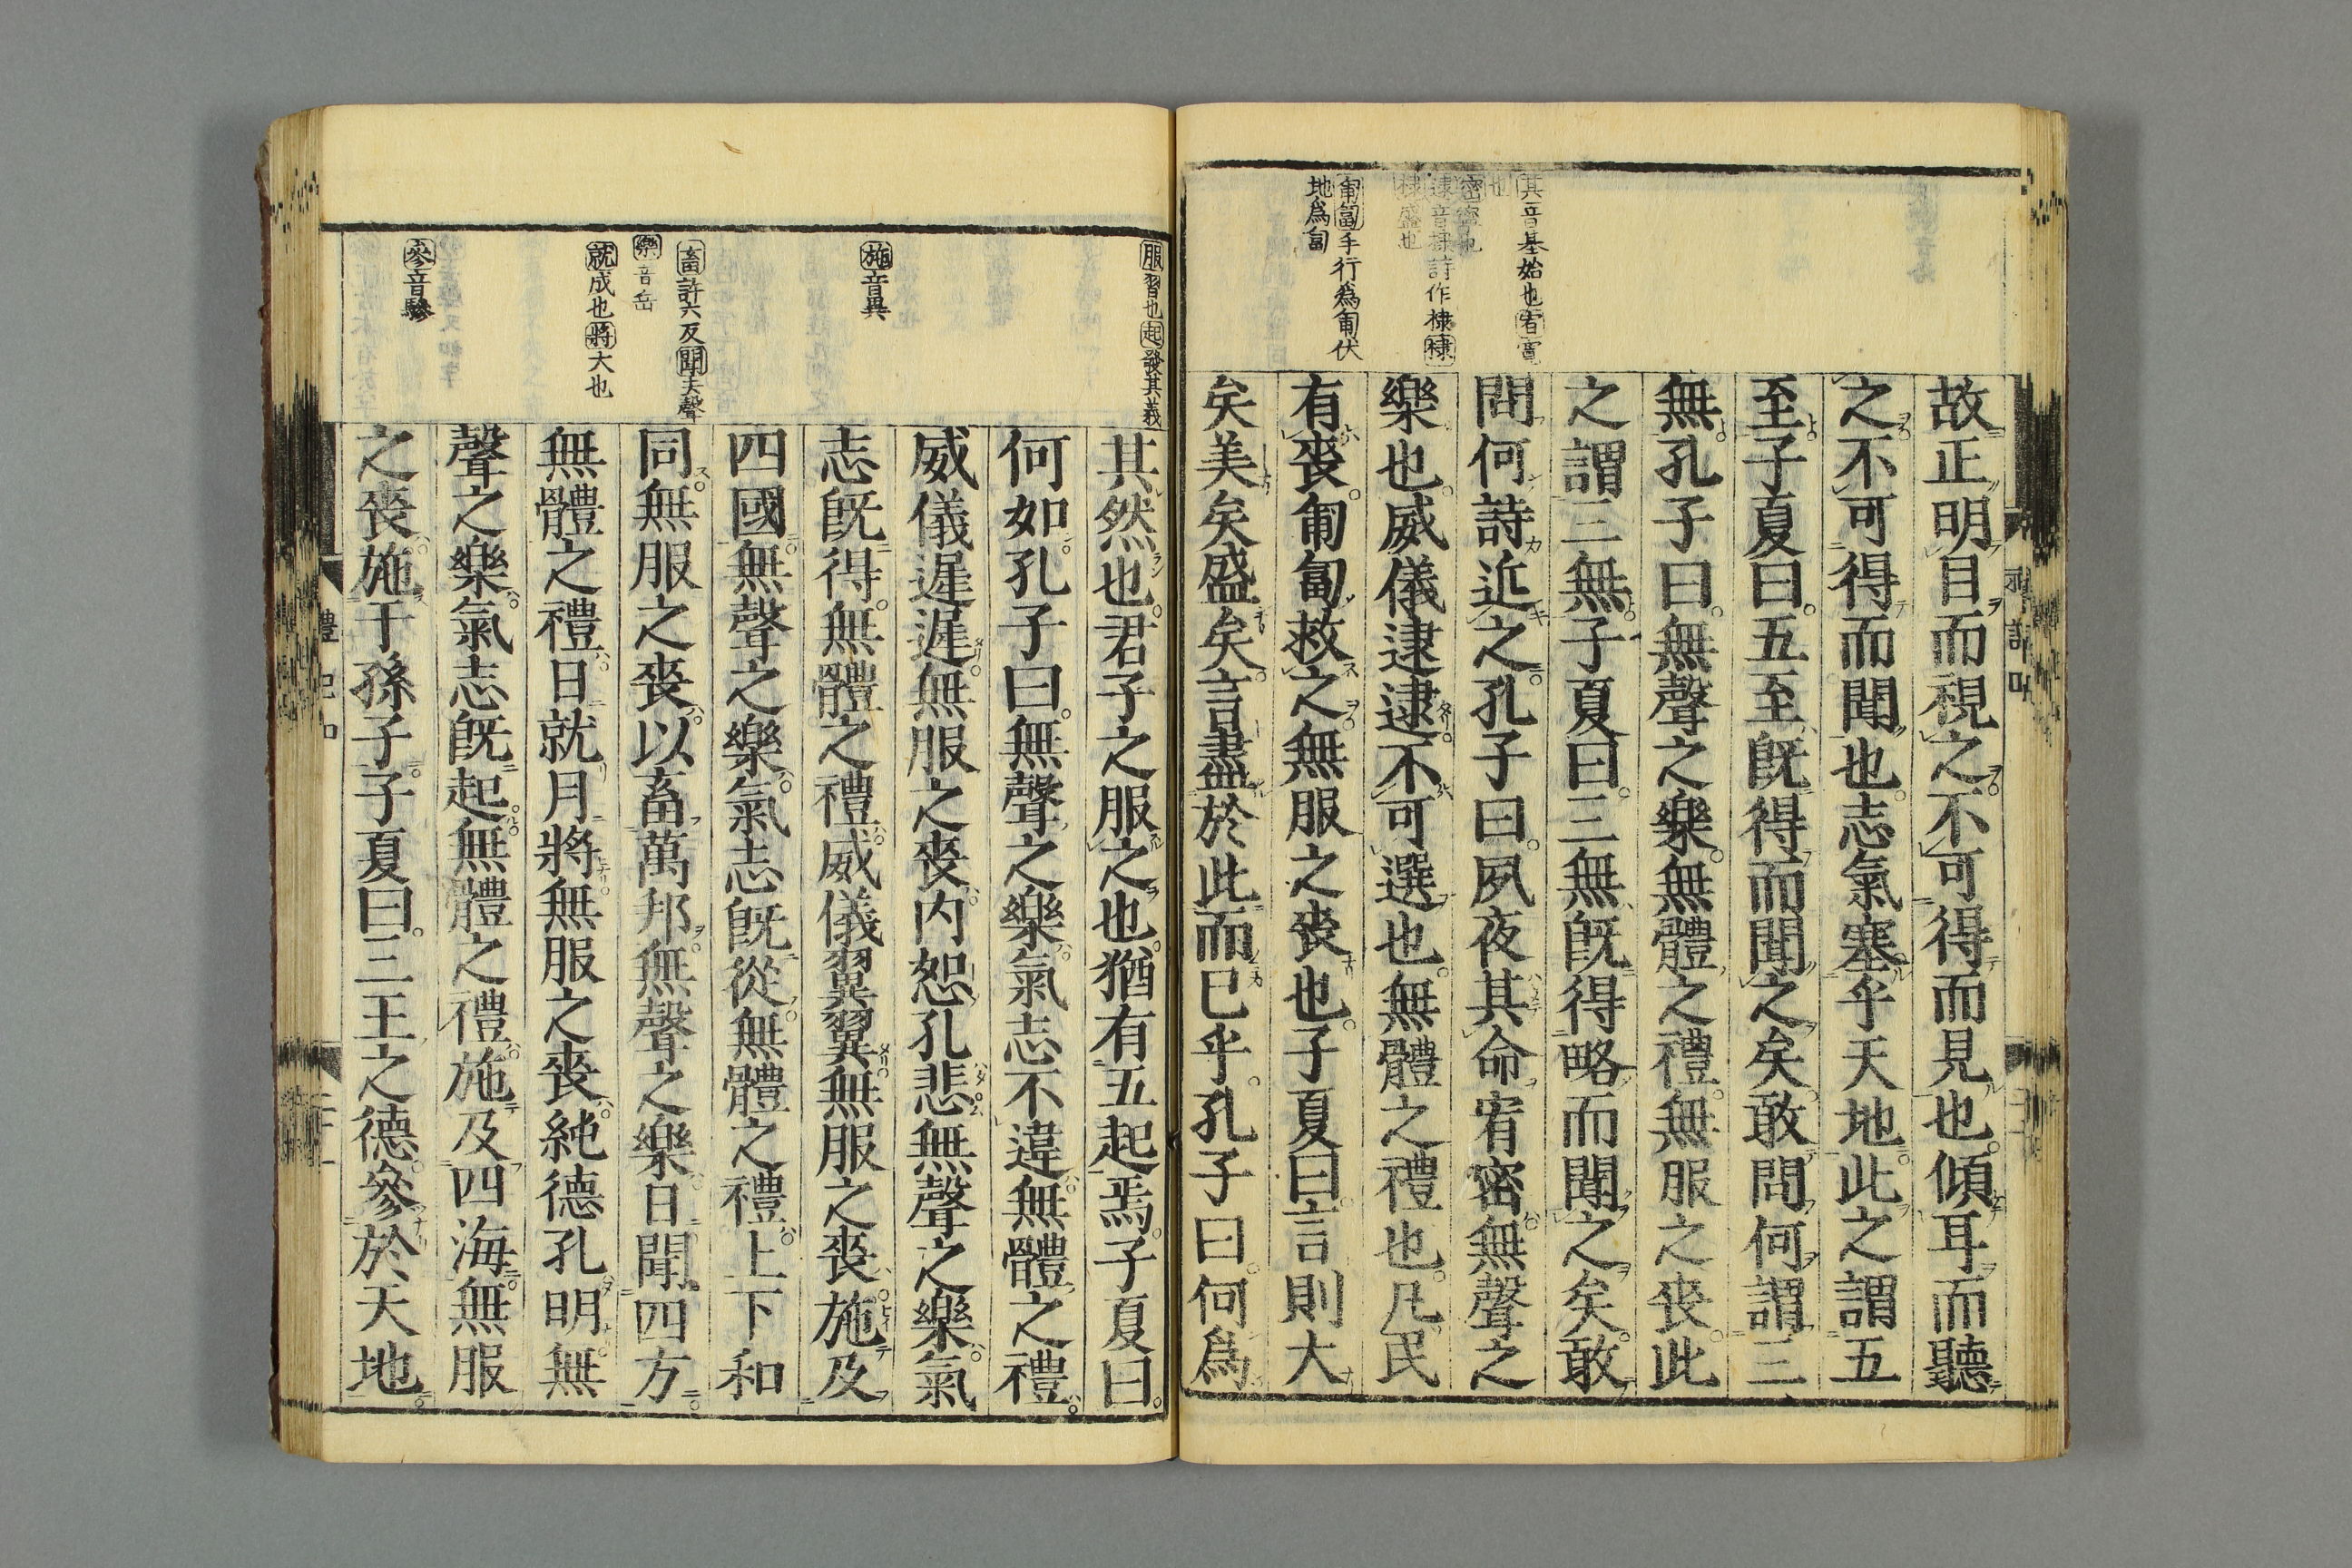 故正明目而視之不可得而見也傾耳而聽
之不可得而聞也志氣塞乎天地此之謂五
至子夏曰五至既得而聞之矣敢問何謂三
無孔子曰無聲之樂無體之禮無服之喪此
之謂三無子夏曰三無既得略而聞之矣敢
問何詩近之孔子曰夙夜其命宥密無聲之
樂也威儀逮逮不可選也無體之禮也凡民
有喪匍匐救之無服之喪也子夏曰言則大
矣美矣盛矣言盡於此而已乎孔子曰何為
其音基始也宥寬
也
密寧也
逮音棣詩作棣棣
棣盛也
匍匐手行為匍伏
地為匐
其然也君子之服之也猶有五起焉子夏曰
何如孔子曰無聲之樂氣志不違無體之禮
威儀遲遲無服之喪內恕孔悲無聲之樂氣
志既得無體之禮威儀翼翼無服之喪施及
四國無聲之樂氣志既從無體之禮上下和
同無服之喪以畜萬邦無聲之樂日聞四方
無體之禮日就月將無服之喪純德孔明無
聲之樂氣志既起無體之禮施及四海無服
之喪施于孫子子夏曰三王之德參於天地
服習也起發其義
施音異
畜許六反聞去聲
樂音岳
就成也將大也
參音驂